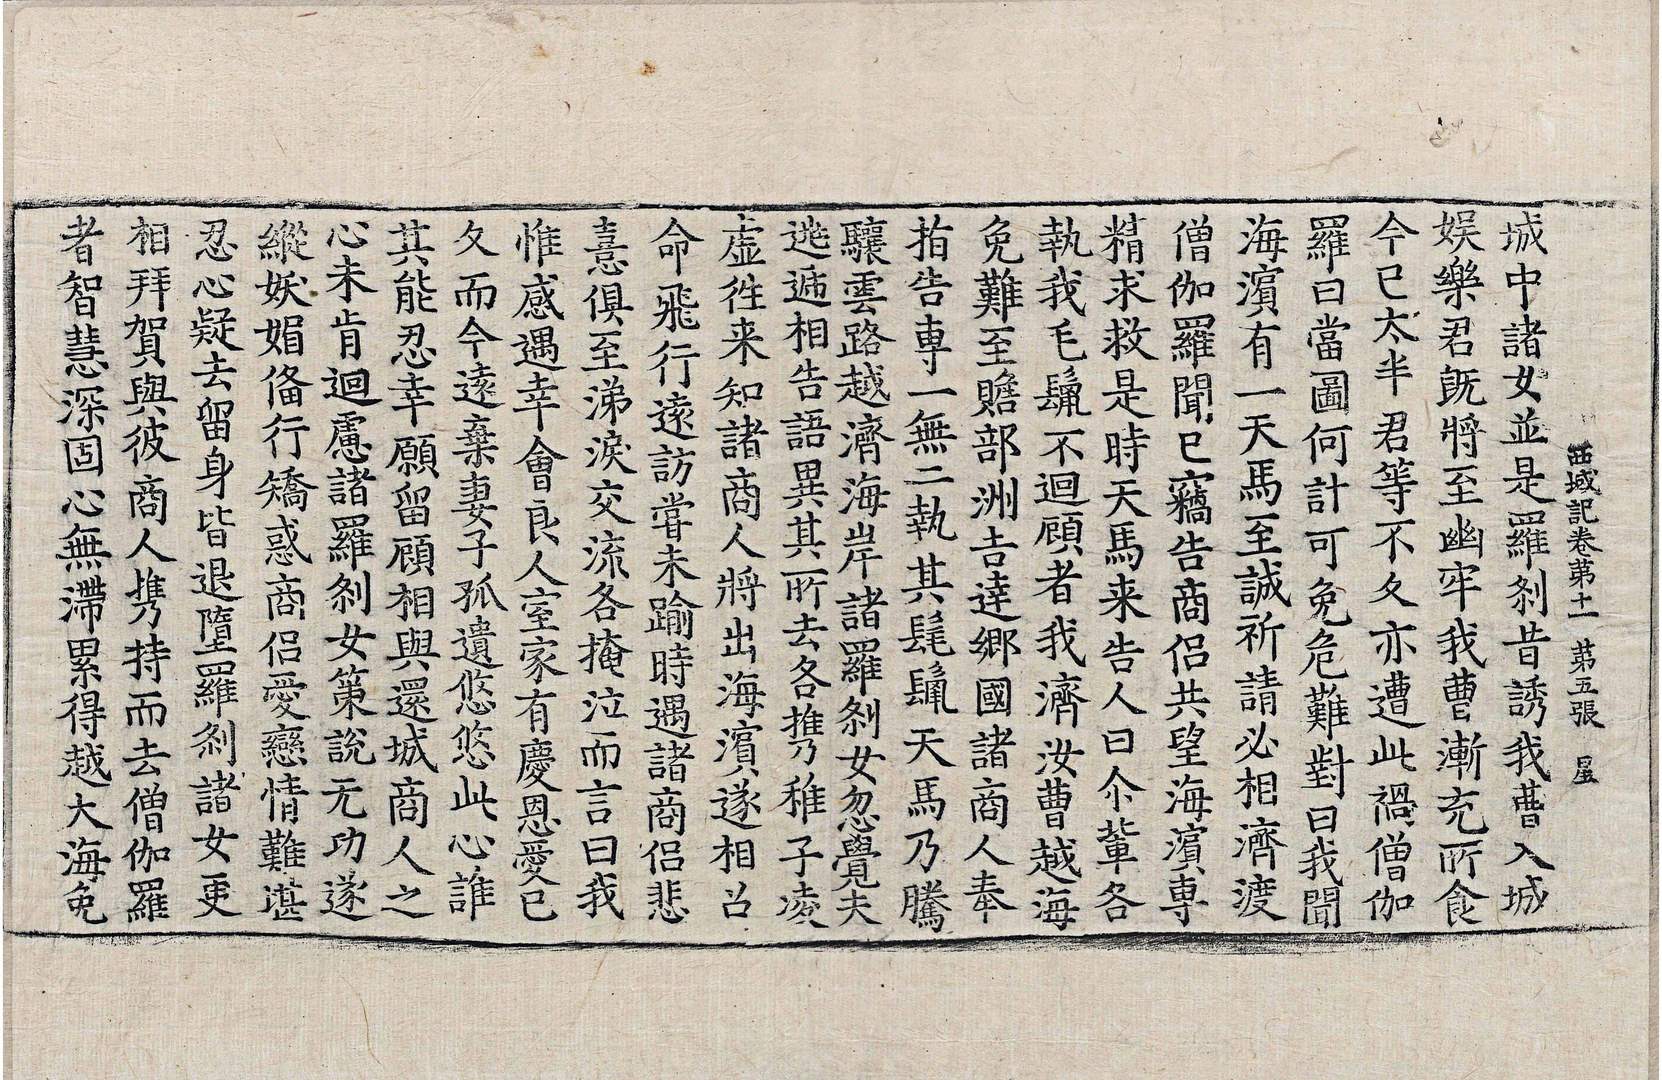 西域記卷第十一 第五張 星
城中諸女並是羅剎昔誘我曹入城
娯樂君旣將至幽牢我曹漸充所食
今已太半君等不久亦遭此禍僧伽
羅曰當圖何計可免危難對曰我聞
海濱有一天馬至誠祈請必相濟渡
僧伽羅聞已竊告商侶共望海濱專
精求救是時天馬来告人曰尒輩各
執我毛鬣不迴顧者我濟汝曹越海
免難至贍部洲吉達鄉國諸商人奉
指告專一無二執其髦鬣天馬乃騰
驤雲路越濟海岸諸羅剎女忽覺夫
逃遞相告語異其所去各携稚子凌
虛徃来知諸商人將出海濱遂相召
命飛行遠訪甞未踰時遇諸商侶悲
憙俱至涕淚交流各掩泣而言曰我
惟感遇幸會良人室家有慶恩愛已
久而今遠棄妻子孤遺悠悠此心誰
其能忍幸願留顧相與還城商人之
心未肯迴慮諸羅剎女策說无功遂
縱妖媚俻行矯惑商侶愛戀情難堪
忍心疑去留身皆退墮羅剎諸女更
相拜賀與彼商人携持而去僧伽羅
者智慧深固心無滯累得越大海免